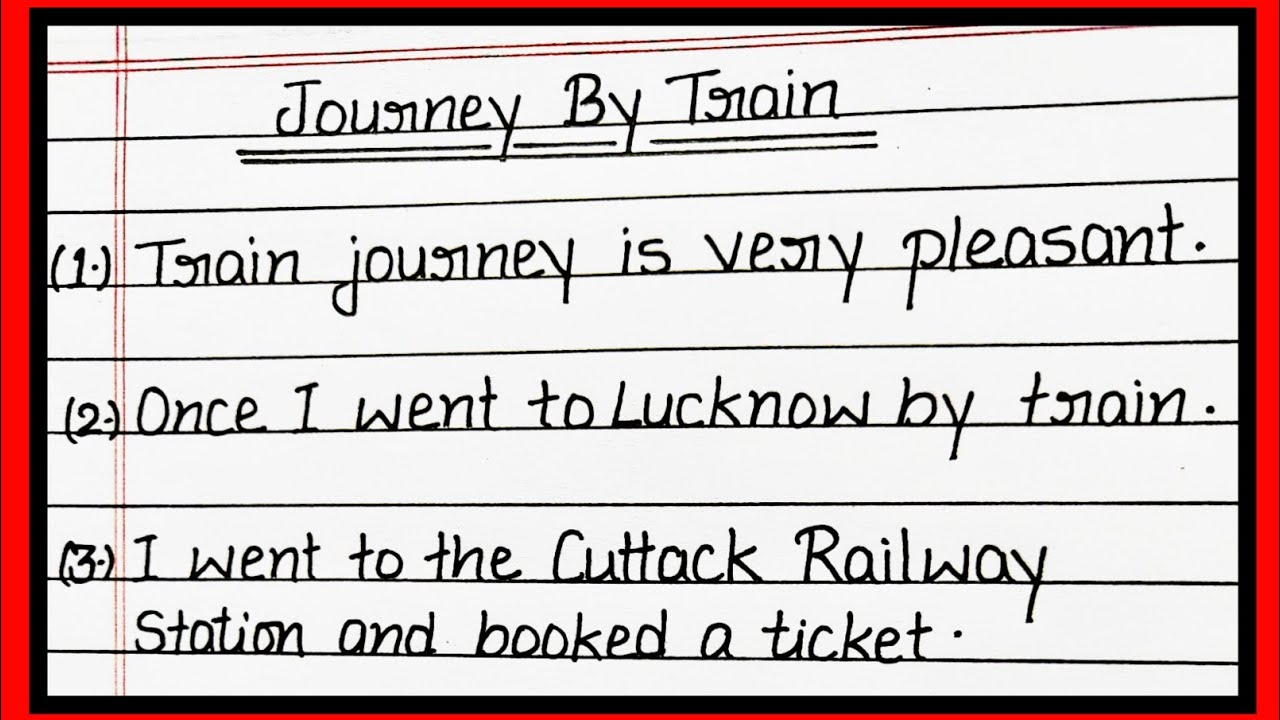 Journey By Train
(1.) Train journey is very pleasant.
(2.) Once I went to Lucknow by train.
(3.) I went to the Cuttack Railway
Station and booked a ticket.